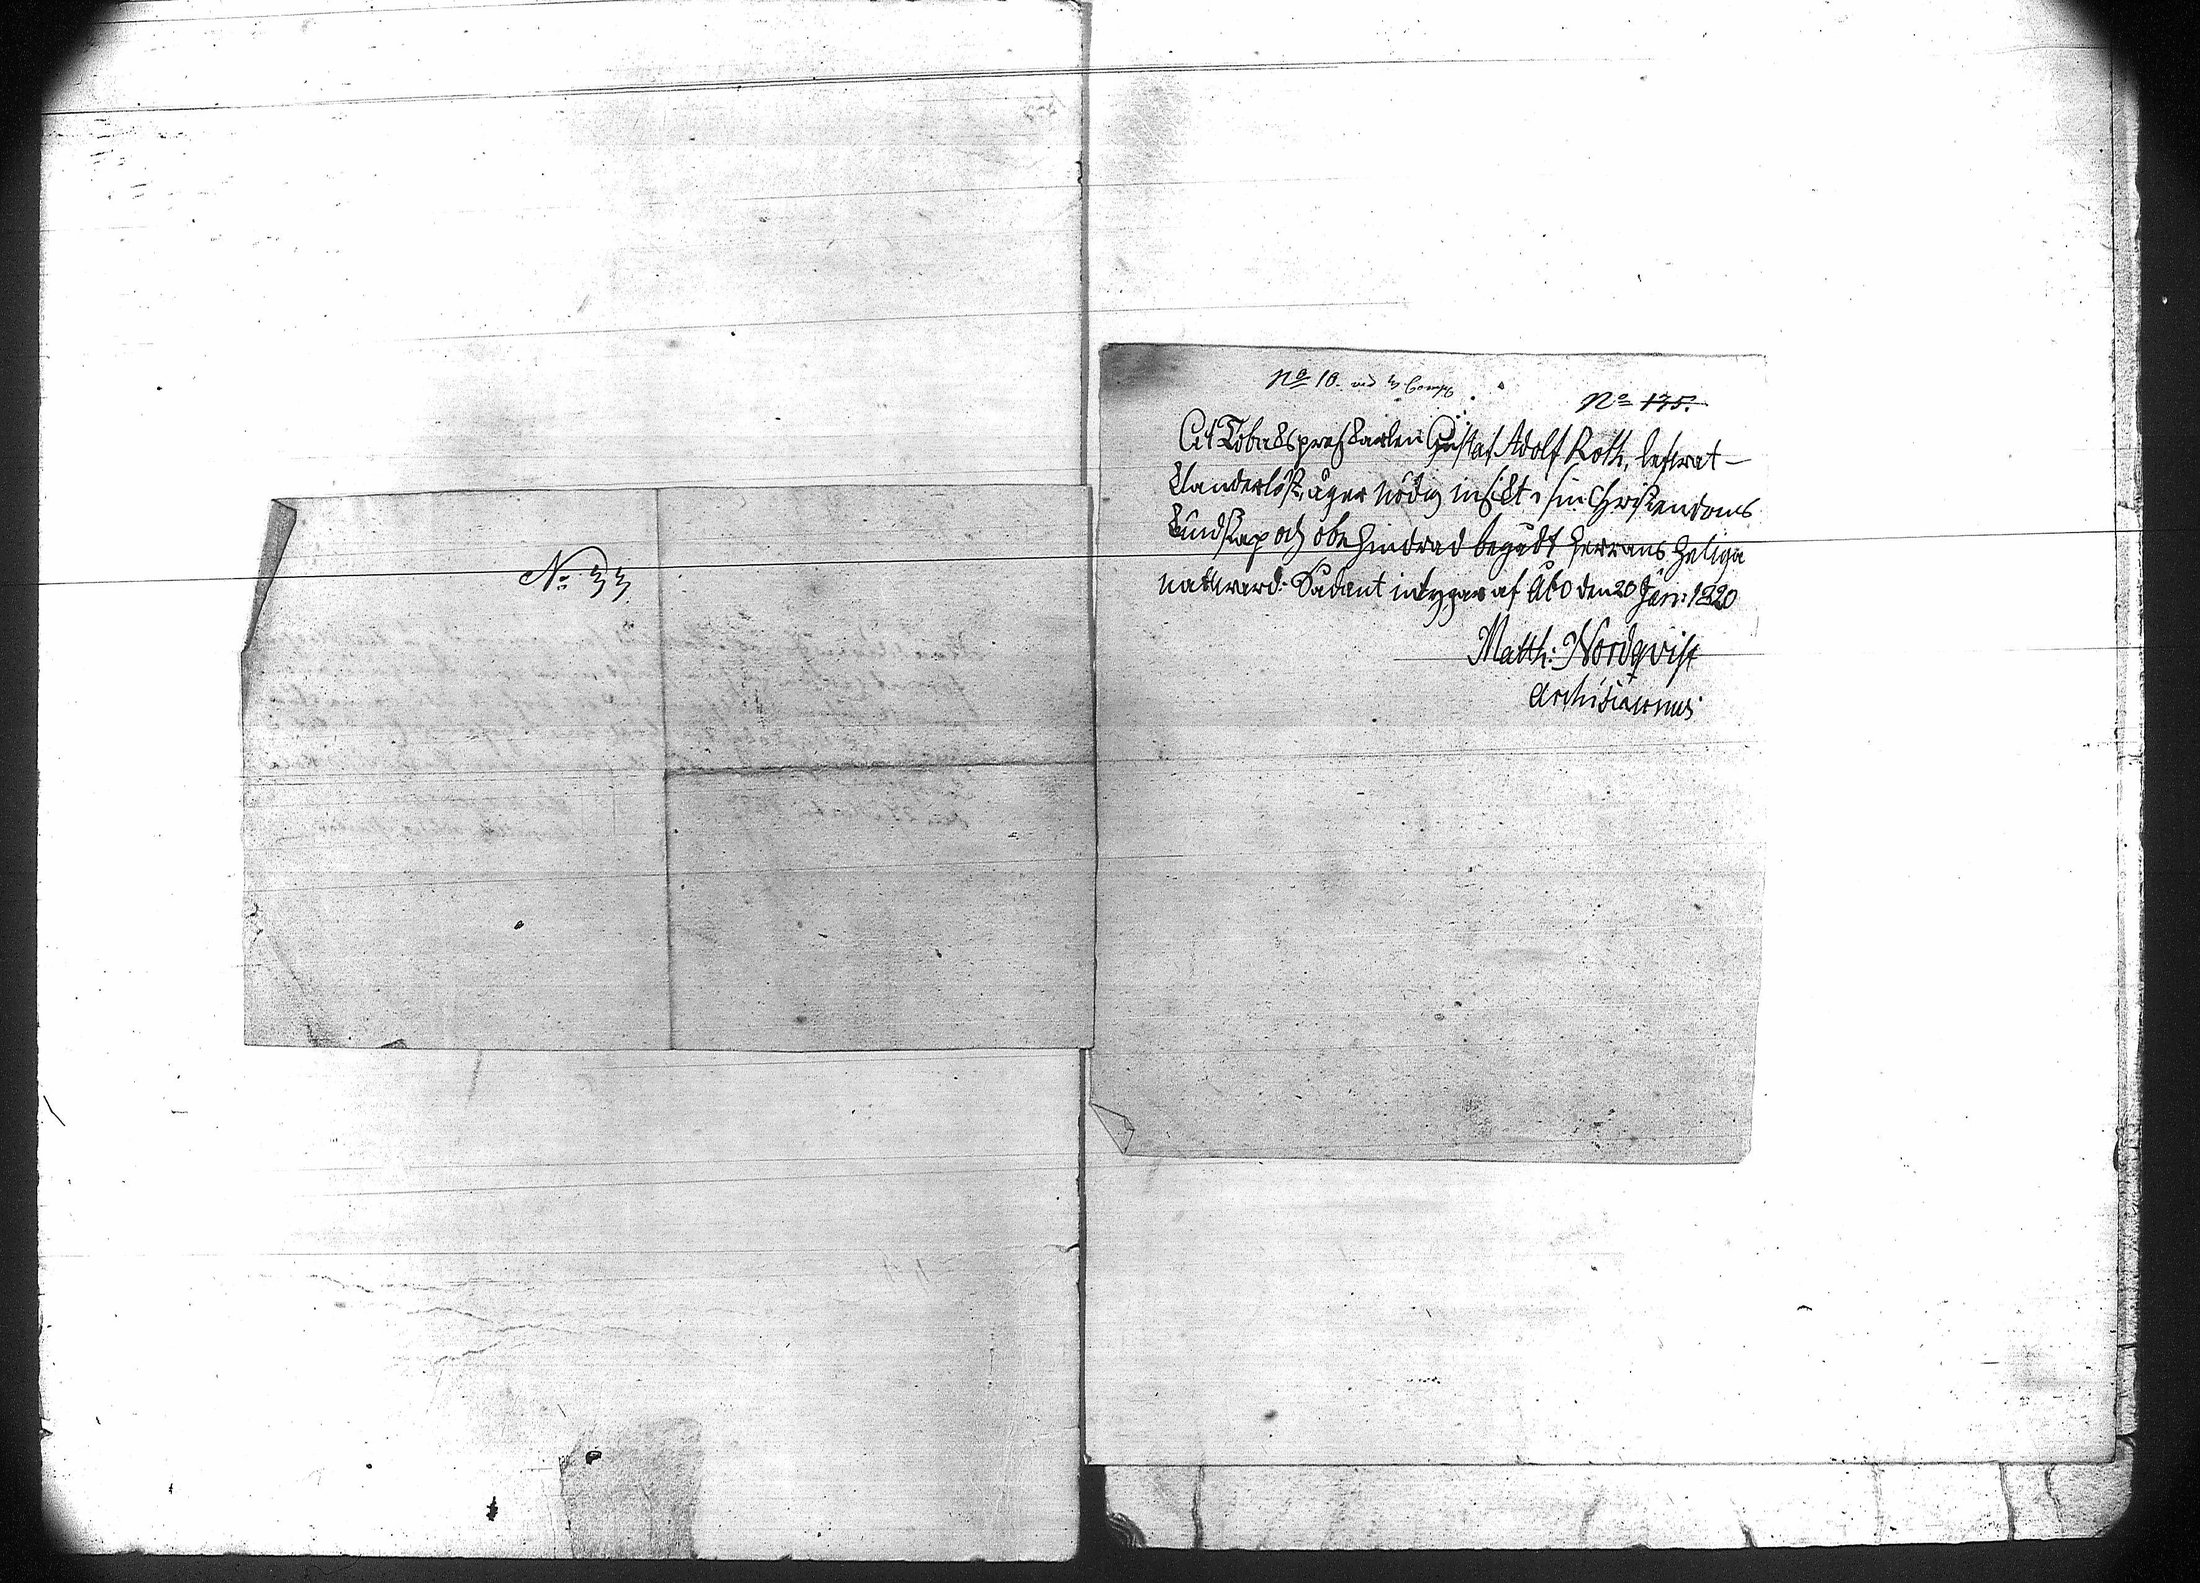 No. 33.
No 10. vid 3 Comp
No 135.
At Tobakspresskarlen Gustaf Adolf Roth, lefwat
klanderlöst, äger nödig insikt i sin Christendoms
kundskap och obehindrad begådt Herrans Heliga
nattward. Sådant intygas af Åbo den 20 Jan: 1820
Matth: Nordqvist
Archidiaconus